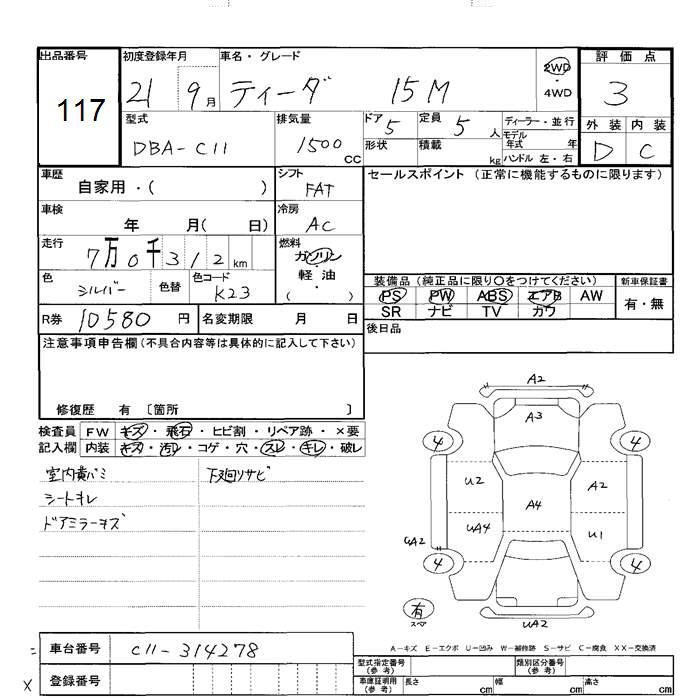 出品番号 初度登録年月 車名・グレード 2WD 評価点
117 21 9月 ティーダ 15M ・4WD 3
型式 排気量 ドア 定員 ディーラー・並行 外装 内装
DBA-C11 1500cc 5 5人 モデル年式 年 D C
形状 積載 kg ハンドル 左・右
車歴 シフト セールスポイント (正常に機能するものに限ります)
自家用・( ) FAT
車検 冷房
年 月( 日) AC
走行 燃料
7万0千312km ガソリン
色 色コード 軽・油
シルバー 色替 K23 ( )
装備品 (純正品に限り○をつけてください) 新車保証書
PS PW ABS エアB AW 有・無
SR ナビ TV カワ
R券 10580円 名変期限 月 日
後日品
注意事項申告欄(不具合内容等は具体的に記入して下さい)
修復歴 有 〔箇所 〕
検査員 FW キズ・飛石・ヒビ割・リペア跡・×要
記入欄 内装 キズ・汚レ・コゲ・穴・スレ・キレ・破レ
室内黄バミ 下廻リサビ
シートキレ
ドアミラーキズ
A2
A3
4 4
U2 A4 A2
UA4 U1
UA2
4 4
有
スペア
UA2
A-キズ E-エクボ U-凹み W-補修跡 S-サビ C-腐食 XX-交換済
= 車台番号 C11-314278
X 登録番号
型式指定番号(参考) 類別区分番号(参考)
車庫証明用(参考) 長さ cm 幅 cm 高さ cm